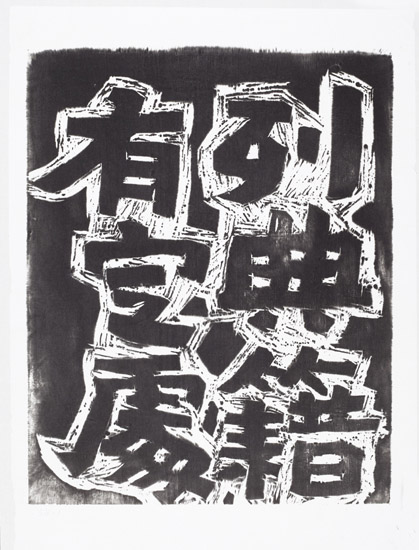 列典籍
有定處